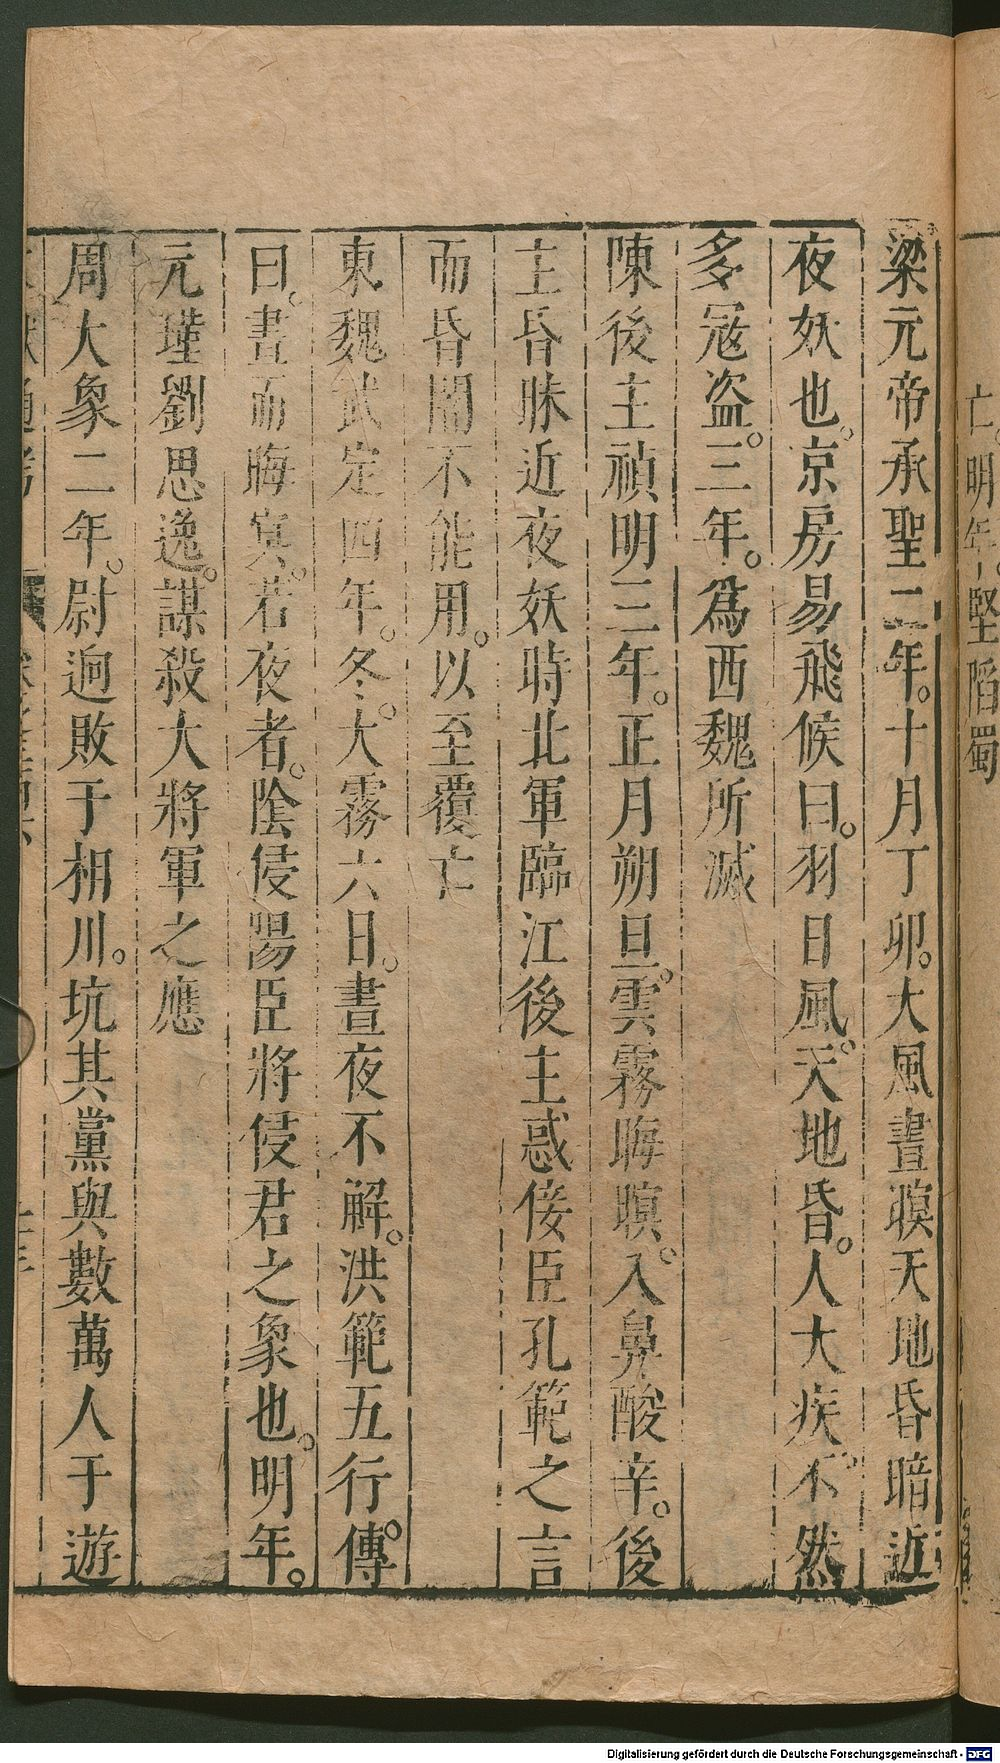 亡。明年。堅陷蜀
梁元帝承聖二年。十月丁卯。大風晝暝天地昏暗近
夜妖也。京房易飛候曰。羽日風。天地昏。人大疾。不然
多寇盜。三年。爲西魏所滅
陳後主禎明三年。正月朔旦。雲霧晦暝。入鼻酸辛。後
主昏昧近夜妖時北軍臨江後主惑佞臣孔範之言
而昏闇不能用。以至覆亡
東魏武定四年。冬。大霧六日。晝夜不解。洪範五行傳
曰。晝而晦冥。若夜者。陰侵陽臣將侵君之象也。明年。
元瑾劉思逸。謀殺大將軍之應
周大象二年。尉迥敗于相川。坑其黨與數萬人于遊
Digitalisierung gefördert durch die Deutsche Forschungsgemeinschaft - DFG